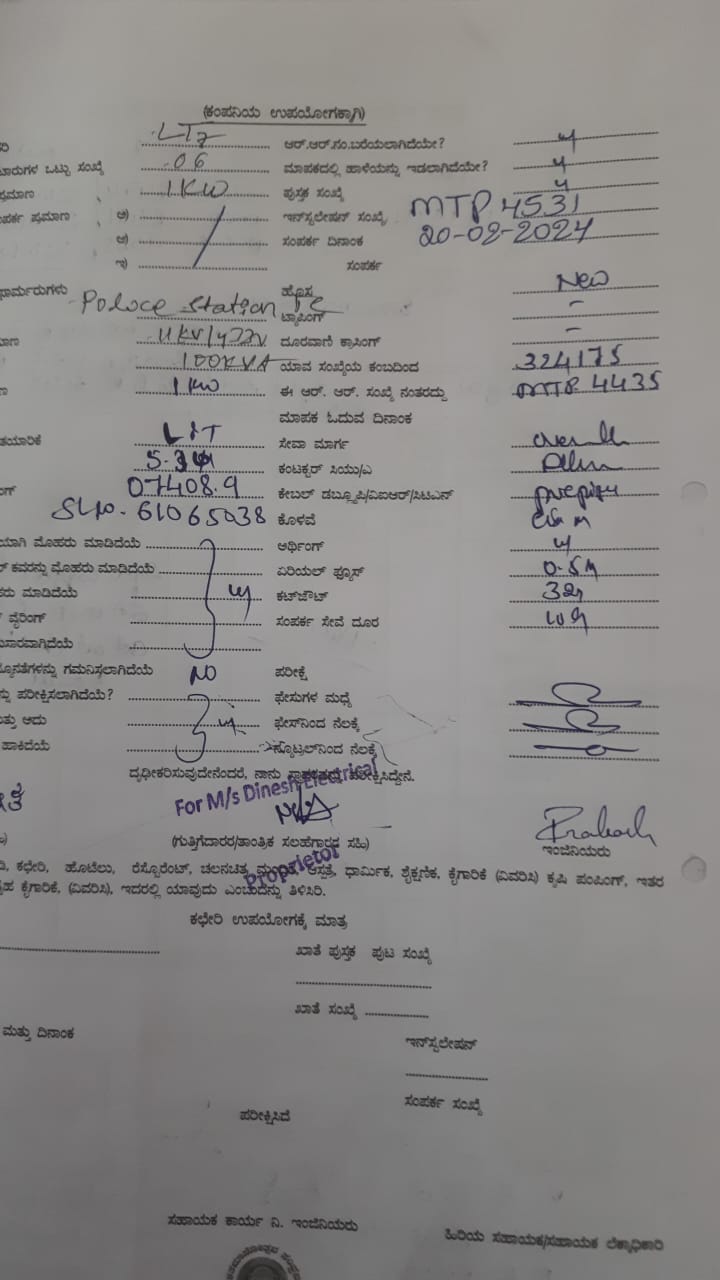 (ಕಂಪನಿಯ ಉಪಯೋಗಕ್ಕಾಗಿ)
LT7 ಆರ್.ಆರ್.ನಂ.ಬರೆಯಲಾಗಿದೆಯೇ? y
ಒಟ್ಟು ಸಂಖ್ಯೆ 06 ಮಾಪಕದಲ್ಲಿ ಹಾಳೆಯನ್ನು ಇಡಲಾಗಿದೆಯೇ? y
ಪ್ರಮಾಣ 1KW ಪುಸ್ತಕ ಸಂಖ್ಯೆ y
ಪ್ರಮಾಣ ಅ) ಇನ್‌ಸ್ಟಲೇಷನ್ ಸಂಖ್ಯೆ MTP 4531
ಆ) ಸಂಪರ್ಕ ದಿನಾಂಕ 20-02-2024
ಇ) ಸಂಪರ್ಕ
Poloce Station ಹೊಸ New
ಟ್ಯಾಪಿಂಗ್ -
11KV/433V ದೂರವಾಣಿ ಕ್ರಾಸಿಂಗ್ -
100KVA ಯಾವ ಸಂಖ್ಯೆಯ ಕಂಬದಿಂದ 324175
1KW ಈ ಆರ್. ಆರ್. ಸಂಖ್ಯೆ ನಂತರದ್ದು MTP 4435
ಮಾಪಕ ಓದುವ ದಿನಾಂಕ
L&T ಸೇವಾ ಮಾರ್ಗ
ಕಂಟಕ್ಟರ್ ಸಿಯು/ಎ
07408.9 ಕೇಬಲ್ ಡಬ್ಲ್ಯೂಪಿ/ವಿಐಆರ್/ಸಿಟಿಎಸ್
Sl No. 61065038 ಕೊಳವೆ
ಮೊಹರು ಮಾಡಿದೆಯೆ ಅರ್ಥಿಂಗ್ y
ಕವರನ್ನು ಮೊಹರು ಮಾಡಿದೆಯೆ ಏರಿಯಲ್ ಫ್ಯೂಸ್ 0.5M
ಮಾಡಿದೆಯೆ y ಕಟ್‌ಔಟ್ 32
ವೈರಿಂಗ್ ಸಂಪರ್ಕ ಸೇವೆ ದೂರ
ಗಮನಿಸಲಾಗಿದೆಯೆ NO ಪರೀಕ್ಷೆ
ಪರೀಕ್ಷಿಸಲಾಗಿದೆಯೆ? ಫೇಸುಗಳ ಮಧ್ಯೆ
ಆದು y ಫೇಸ್‌ನಿಂದ ನೆಲಕ್ಕೆ
ಹಾಕಿದೆಯೆ ನ್ಯೂಟ್ರಲ್‌ನಿಂದ ನೆಲಕ್ಕೆ
ದೃಢೀಕರಿಸುವುದೇನೆಂದರೆ, ನಾನು ಪರೀಕ್ಷಿಸಿದ್ದೇನೆ.
For M/s Dinesh Electrical
Prakash
(ಗುತ್ತಿಗೆದಾರರ/ತಾಂತ್ರಿಕ ಸಲಹೆಗಾರರ ಸಹಿ) ಇಂಜಿನಿಯರು
Proprietor
ಕಛೇರಿ, ಹೊಟೆಲು, ರೆಸ್ಟೊರೆಂಟ್, ಚಲನಚಿತ್ರ ಮಂದಿರ, ಆಸ್ಪತ್ರೆ, ಧಾರ್ಮಿಕ, ಶೈಕ್ಷಣಿಕ, ಕೈಗಾರಿಕೆ (ವಿವರಿಸಿ) ಕೃಷಿ ಪಂಪಿಂಗ್, ಇತರ
ಕೈಗಾರಿಕೆ, (ವಿವರಿಸಿ), ಇದರಲ್ಲಿ ಯಾವುದು ಎಂಬುದನ್ನು ತಿಳಿಸಿರಿ.
ಕಛೇರಿ ಉಪಯೋಗಕ್ಕೆ ಮಾತ್ರ
ಖಾತೆ ಪುಸ್ತಕ ಪುಟ ಸಂಖ್ಯೆ
ಖಾತೆ ಸಂಖ್ಯೆ
ಮತ್ತು ದಿನಾಂಕ
ಇನ್‌ಸ್ಟಲೇಷನ್
ಸಂಪರ್ಕ ಸಂಖ್ಯೆ
ಪರೀಕ್ಷಿಸಿದೆ
ಸಹಾಯಕ ಕಾರ್ಯ ನಿ. ಇಂಜಿನಿಯರು
ಹಿರಿಯ ಸಹಾಯಕ/ಸಹಾಯಕ ಲೆಕ್ಕಾಧಿಕಾರಿ